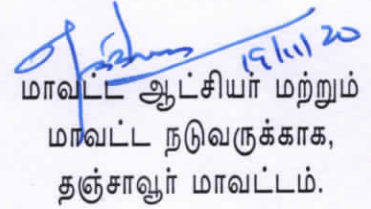 19/11/20
மாவட்ட ஆட்சியர் மற்றும்
மாவட்ட நடுவருக்காக,
தஞ்சாவூர் மாவட்டம்.